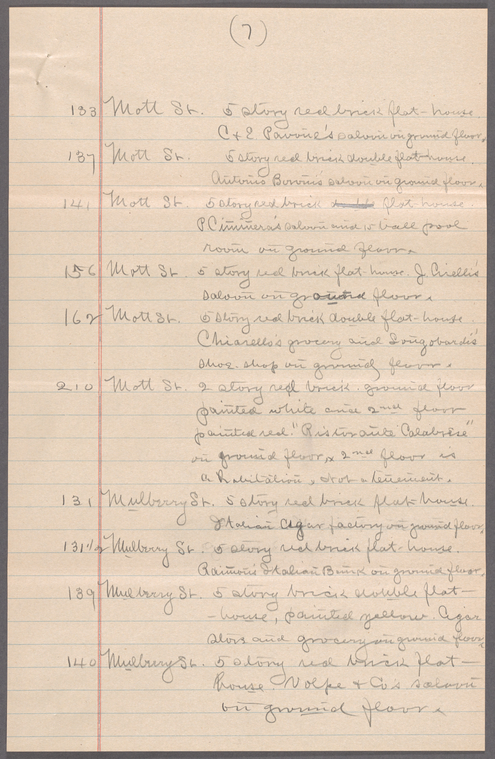 (7)
133 Mott St. 5 story red brick flat-house.
C & E Pavone's saloon on ground floor.
137 Mott St. 5 story red brick double flat house.
Antonio Bovino's saloon on ground floor.
141 Mott St. 5 story red brick flat house.
P Cimmera's saloon and 15 ball pool
room on ground floor.
156 Mott St. 5 story red brick flat-house. J. Cirelli's
saloon on ground floor.
162 Mott St. 5 story red brick double flat-house.
Chiarello's grocery and Longobardi's
shoe shop on ground floor.
210 Mott St. 2 story red brick. ground floor
painted white and 2nd floor
painted red. "Ristorante Calabrese"
on ground floor, 2nd floor is
a habitation, not a tenement.
131 Mulberry St. 5 story red brick flat house.
Italian cigar factory on ground floor.
131 1/2 Mulberry St. 5 story red brick flat-house.
Italian Bank on ground floor.
139 Mulberry St. 5 story brick double flat-
-house, painted yellow. Cigar
store and grocery on ground floor.
140 Mulberry St. 5 story red brick flat-
house. Volpe & Co's saloon
on ground floor.